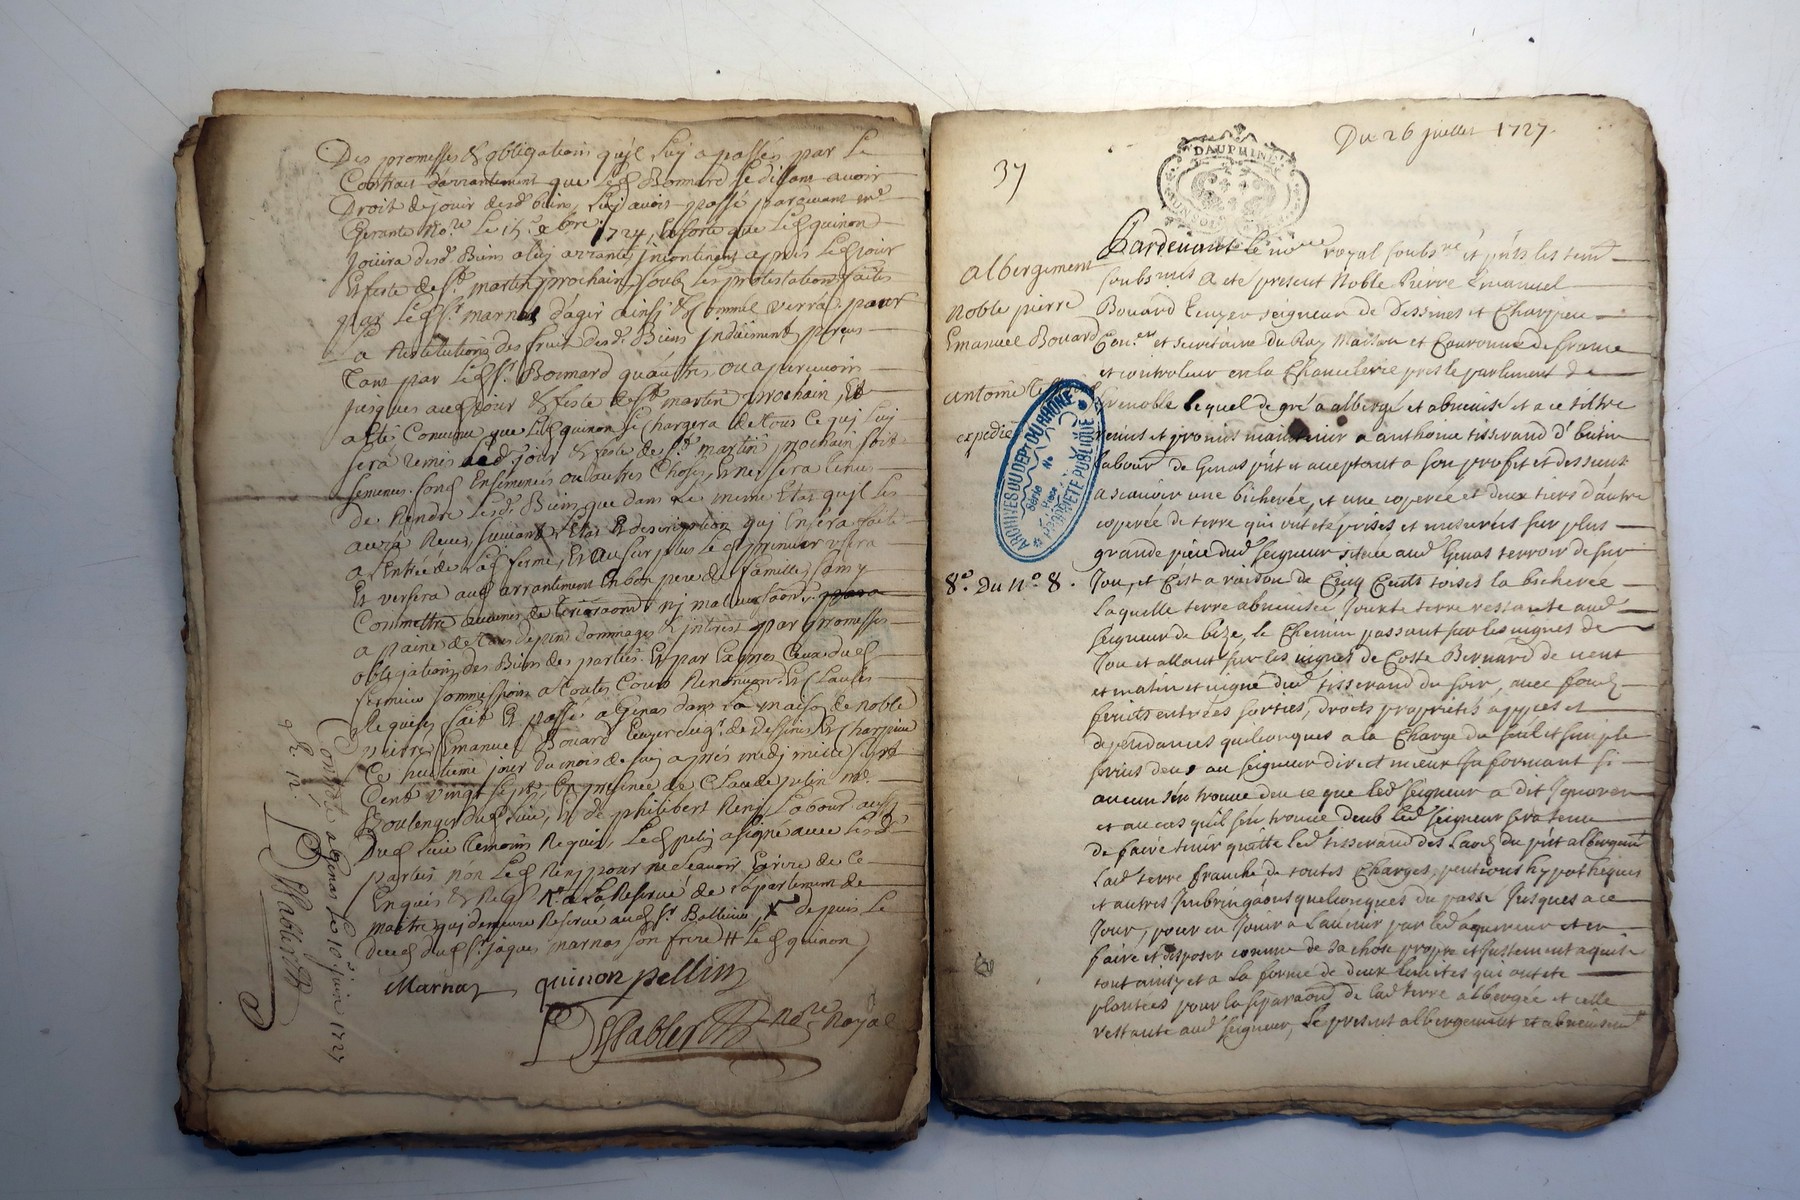 Des promesses & obligations qu'il luy a passés par le
Contrat d'arrantement que led Bonnard se disant avoir
Droit de jouir desd biens, luy avoit passé pardevant me
no.re Le 15.e 1724, ensorte que led quinon
Jouira desd. Biens a luy arrantés incontinent apres led jour
Et feste de St. martin prochain, soub les protestations faites
par led Sr. marnas d'agir ainsi & comme verra pour
a Restitution des fruit desd. Biens indüement perçus
Tant par led Sr. Bonnard qu'autres ou a percevoir
jusques aud jour & feste de St. martin prochain, Et
a esté Convenu que led quinon se Chargera de tous ce qui luy
sera remis aud. jour & feste de St. martin prochain soit
semences, fonds Ensemencés ou autres Choses, Et ne sera tenus
de Rendre lesd. Biens que dans Le meme Etat qu'il les
aura Recus, suivant l'Etat Et description qui En sera faite
a Entrée de lad ferme, Et au sur plus led
Et versera aud arrantement En bon pere de famille, sans y
Commettre aucunes ny malversaon
a paine de tous depens dommages & interest par promesses
obligations des Biens des parties Et par Exprés Ceux dud
fermier soummissions a toutes Cours Renonciaon Et Clauses
Requises fait Et passé a Genas dans La maison de noble
pierre Emanuel Bouard Ecuyer seigr. de Dessines Et Charpieu
Ce huitieme jour du mois de juin apres midi mille sept
Cent vingt sept, En presence de Claude pelin me.
Boulenger dud lieu, Et de philibert Rey Labour. aussy
Dud Lieu temoins Requis, Led pelin a signé avec les
parties non Led Rey pour ne scavoir Ecrire de Ce
Enquis & Reqs. a La Reserve de l'apartement de
maitre qui demeure Reservé aud Sr. depuis Le
Deces dud Sr. Jaques marnas son frere # Led quinon
Marnas quinon pellin
DesSabler No.re Royal
Controllé a Genas Le 10e juin 1727
R. 12
DesSablere
37
DAUPHINÉ
Du 26 juillet 1727.
albergement
Noble pierre
Emanuel Bouard
antoine
expedié
8.e Du N.o 8.
ARCHIVES DU DEPT DU RHÔNE
Série
No
Liasse
PROPRIÉTÉ PUBLIQUE
Pardevant le no.re royal soubs.né et pnts les tem.
soubs nnés a eté present Noble Pierre Emanuel
Bouard Ecuyer seigneur de Dessines et Charpieu
Con.er et secretaire du Roy Maison et Couronne de france
et controleur en la Chancelerie pres le parlement de
Grenoble lequel de gré a albergé et abneuisé et a ce tiltre
remis et promis maintenir a anthoine tisserand d'
labour. de Genas pnt et acceptant a son profit et des siens
a scavoir une bicherée, et une coperée et deux tiers d'autre
coperée de terre qui ont eté prises et mesurées sur plus
grande piece dud. seigneur située aud. Genas terroir de sur
Jou, et c'est a raison de Cinq Cents toises la bicherée
laquelle terre abneuisée Jouxte terre restante aud.
seigneur de bize, le Chemin passant sur les vignes de
Jou et allant sur les vignes de Coste Bernard de vent
et matin et vigne dud. tisserand du soir, avec fonds
fruits entrées sorties, droits proprietés appces et
dependances quelconques a la Charge du seul et simple
servis deus au seigneur direct mieux s'informant si
aucun s'en trouve deu ce que led. seigneur a dit Ignorer
et au cas qu'il s'en trouve deub led. seigneur sera tenu
de faire tenir quitte led. tisserand des Laods du pnt albergemt
lad. terre franche de toutes Charges, pentions hypotheques
et autres Imbringaons quelconques du passé Jusques a ce
Jour, pour en Jouir a L'avenir par led. aquereur et en
faire et disposer comme de sa chose propre et Justement aquise
tout ainsy et a la forme de deux limites qui ont eté
plantées pour la separaon de lad. terre albergée et celle
restante aud. seigneur, Le present albergement et abneuisemt